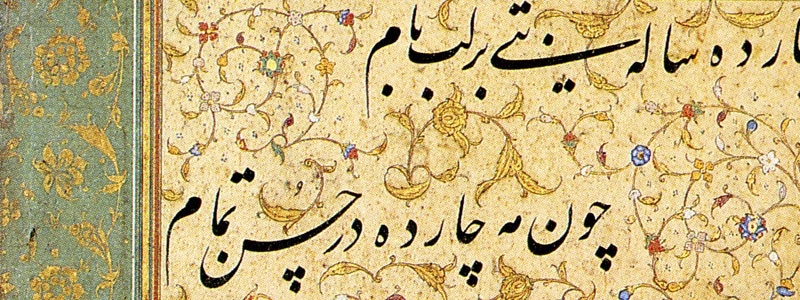 ارده ساله بتی بر لب بام
چون مه چارده در حسن تمام